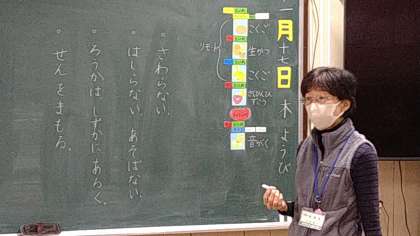 一月十七日 木ようび
こくご
生かつ
こくご
音がく
リモート
。さわらない
。はしらない あそばない。
。ろうかは しずかに あるく。
。せんを まもる。